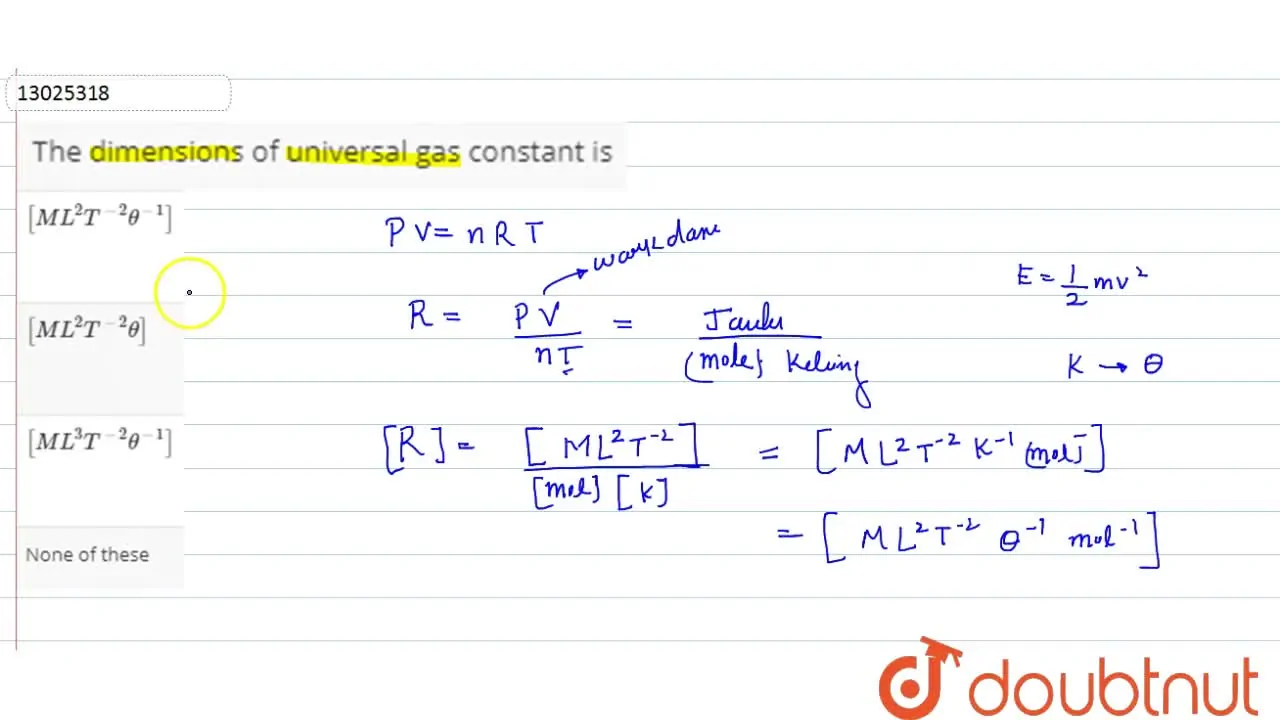 13025318
The dimensions of universal gas constant is
[ML²T⁻²θ⁻¹]
[ML²T⁻²θ]
[ML³T⁻²θ⁻¹]
None of these
PV = nRT
R = PV / nT = / (mole)
E = 1/2 mv²
K → θ
[R] = [ML²T⁻²] / [mol] [K] = [ML²T⁻² K⁻¹ (mol)⁻]
= [ML²T⁻² θ⁻¹ mol⁻¹]
doubtnut